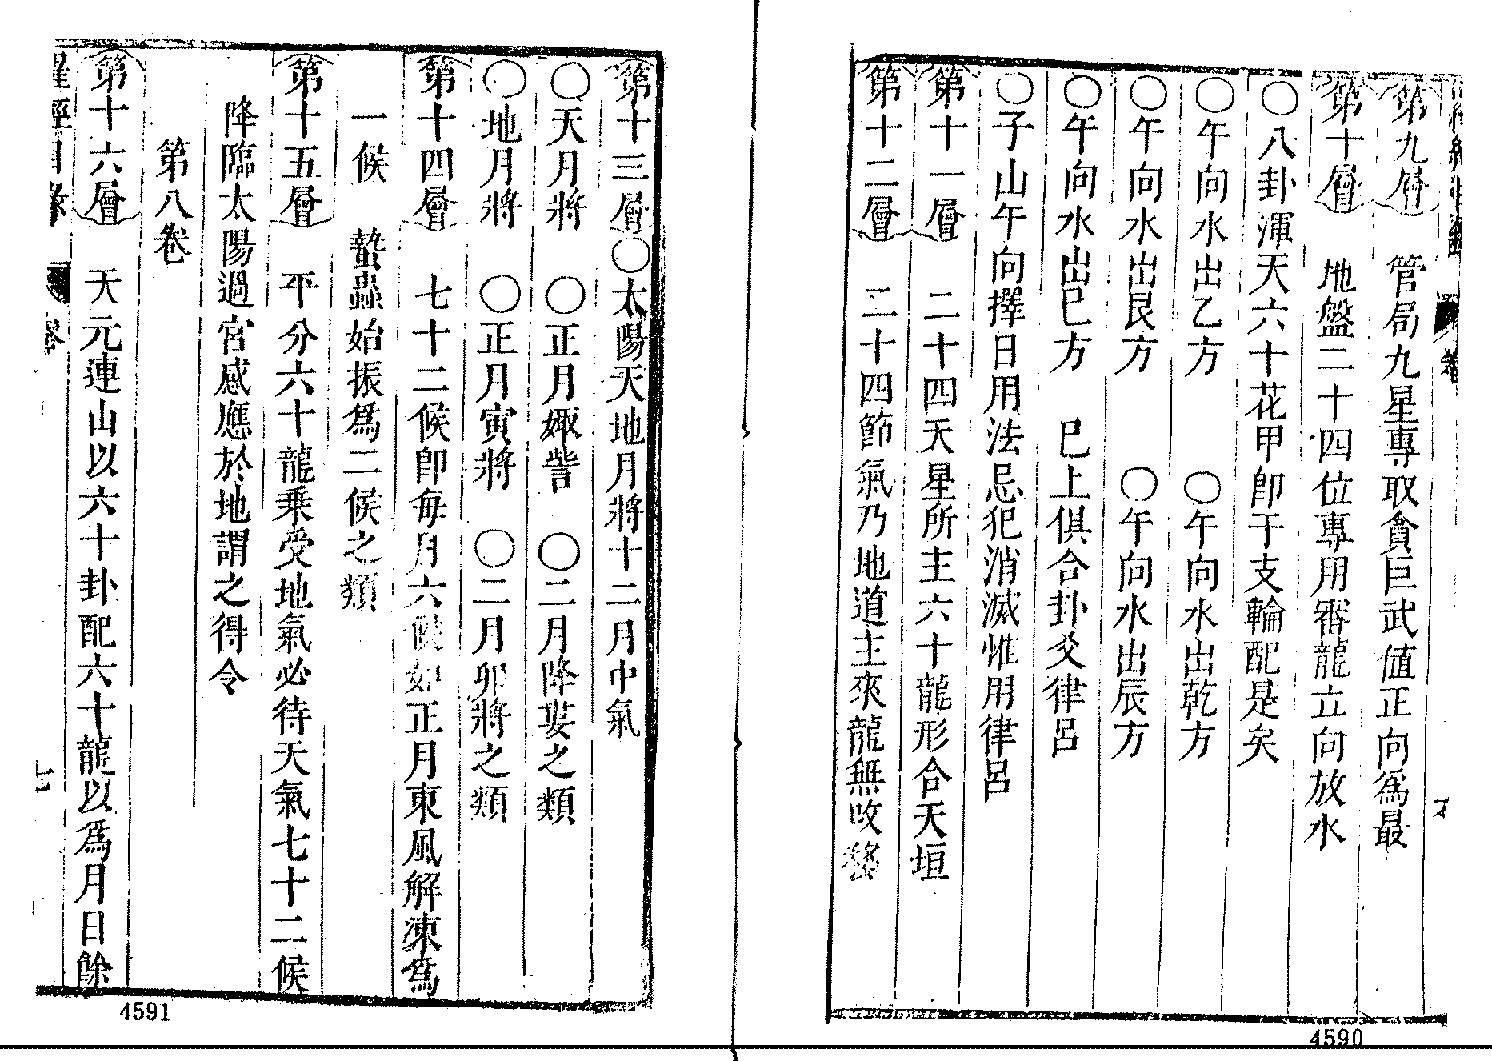 第九層　管局九星專取貪巨武値正向爲最
第十層　地盤二十四位專用審龍立向放水
〇八卦渾天六十花甲卽干支輪配是矣
〇午向水出乙方　〇午向水出乾方
〇午向水出艮方　〇午向水出辰方
〇午向水出巳方　巳上俱合卦爻律呂
〇子山午向擇日用法忌犯消滅惟用律呂
第十一層　二十四天星所主六十龍形合天垣
第十二層　二十四節氣乃地道主來龍無改移
4590
第十三層〇太陽天地月將十二月中氣
〇天月將　〇正月娵訾　〇二月降婁之類
〇地月將　〇正月寅將　〇二月卯將之類
第十四層　七十二候卽每月六候如正月東風解凍爲
一候　蟄蟲始振爲二候之類
第十五層　平分六十龍乘受地氣必待天氣七十二候
降臨太陽過宮感應於地謂之得令
第八卷
第十六層　天元連山以六十卦配六十龍以爲月日餘
七
4591